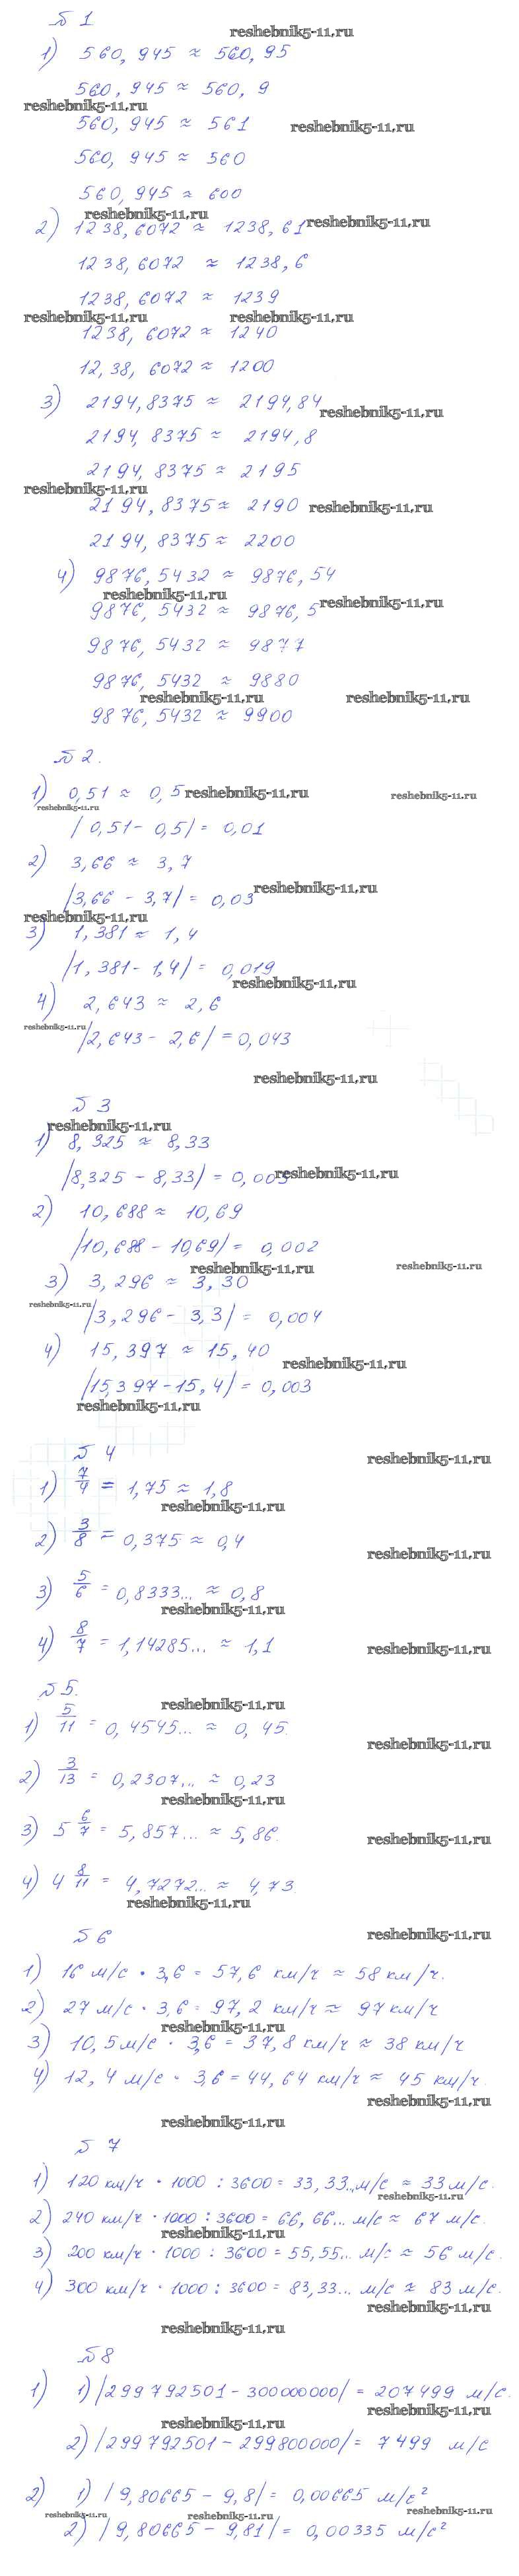 № 1
reshebnik5-11.ru
1) 560,945 ≈ 560,95
560,945 ≈ 560,9
reshebnik5-11.ru
560,945 ≈ 561
reshebnik5-11.ru
560,945 ≈ 560
560,945 ≈ 600
reshebnik5-11.ru
2) 1238,6072 ≈ 1238,61
reshebnik5-11.ru
1238,6072 ≈ 1238,6
1238,6072 ≈ 1239
reshebnik5-11.ru reshebnik5-11.ru
1238,6072 ≈ 1240
12,38,6072 ≈ 1200
3) 2194,8375 ≈ 2194,84
reshebnik5-11.ru
2194,8375 ≈ 2194,8
2194,8375 ≈ 2195
reshebnik5-11.ru
2194,8375 ≈ 2190
reshebnik5-11.ru
2194,8375 ≈ 2200
4) 9876,5432 ≈ 9876,54
reshebnik5-11.ru
9876,5432 ≈ 9876,5
reshebnik5-11.ru
9876,5432 ≈ 9877
9876,5432 ≈ 9880
reshebnik5-11.ru reshebnik5-11.ru
9876,5432 ≈ 9900
№ 2.
1) 0,51 ≈ 0,5
reshebnik5-11.ru reshebnik5-11.ru
reshebnik5-11.ru
|0,51 - 0,5| = 0,01
2) 3,66 ≈ 3,7
|3,66 - 3,7| = 0,03
reshebnik5-11.ru
reshebnik5-11.ru
3) 1,381 ≈ 1,4
|1,381 - 1,4| = 0,019
reshebnik5-11.ru
4) 2,643 ≈ 2,6
reshebnik5-11.ru
|2,643 - 2,6| = 0,043
reshebnik5-11.ru
№ 3
reshebnik5-11.ru
1) 8,325 ≈ 8,33
|8,325 - 8,33| = 0,005
reshebnik5-11.ru
2) 10,688 ≈ 10,69
|10,688 - 10,69| = 0,002
reshebnik5-11.ru reshebnik5-11.ru
3) 3,296 ≈ 3,30
reshebnik5-11.ru
|3,296 - 3,3| = 0,004
4) 15,397 ≈ 15,40
reshebnik5-11.ru
|15,397 - 15,4| = 0,003
reshebnik5-11.ru
№ 4
reshebnik5-11.ru
1) 7/4 = 1,75 ≈ 1,8
reshebnik5-11.ru
2) 3/8 = 0,375 ≈ 0,4
reshebnik5-11.ru
3) 5/6 = 0,8333... ≈ 0,8
reshebnik5-11.ru
4) 8/7 = 1,14285... ≈ 1,1
reshebnik5-11.ru
№ 5.
reshebnik5-11.ru
1) 5/11 = 0,4545... ≈ 0,45.
reshebnik5-11.ru
2) 3/13 = 0,2307... ≈ 0,23
reshebnik5-11.ru
3) 5 6/7 = 5,857... ≈ 5,86.
reshebnik5-11.ru
4) 4 8/11 = 4,7272... ≈ 4,73.
reshebnik5-11.ru
№ 6
reshebnik5-11.ru
1) 16 м/с · 3,6 = 57,6 км/ч ≈ 58 км/ч.
2) 27 м/с · 3,6 = 97,2 км/ч ≈ 97 км/ч
reshebnik5-11.ru
3) 10,5 м/с · 3,6 = 37,8 км/ч ≈ 38 км/ч
4) 12,4 м/с · 3,6 = 44,64 км/ч ≈ 45 км/ч.
reshebnik5-11.ru
reshebnik5-11.ru
№ 7
1) 120 км/ч · 1000 : 3600 = 33,33... м/с ≈ 33 м/с.
reshebnik5-11.ru
2) 240 км/ч · 1000 : 3600 = 66,66... м/с ≈ 67 м/с.
reshebnik5-11.ru
3) 200 км/ч · 1000 : 3600 = 55,55... м/с ≈ 56 м/с.
4) 300 км/ч · 1000 : 3600 = 83,33... м/с ≈ 83 м/с.
reshebnik5-11.ru
reshebnik5-11.ru
№ 8
1) 1) |299 792 501 - 300 000 000| = 207 499 м/с.
reshebnik5-11.ru
reshebnik5-11.ru
2) |299 792 501 - 299 800 000| = 7 499 м/с
2) 1) |9,80665 - 9,8| = 0,00665 м/с²
reshebnik5-11.ru reshebnik5-11.ru reshebnik5-11.ru
2) |9,80665 - 9,81| = 0,00335 м/с²